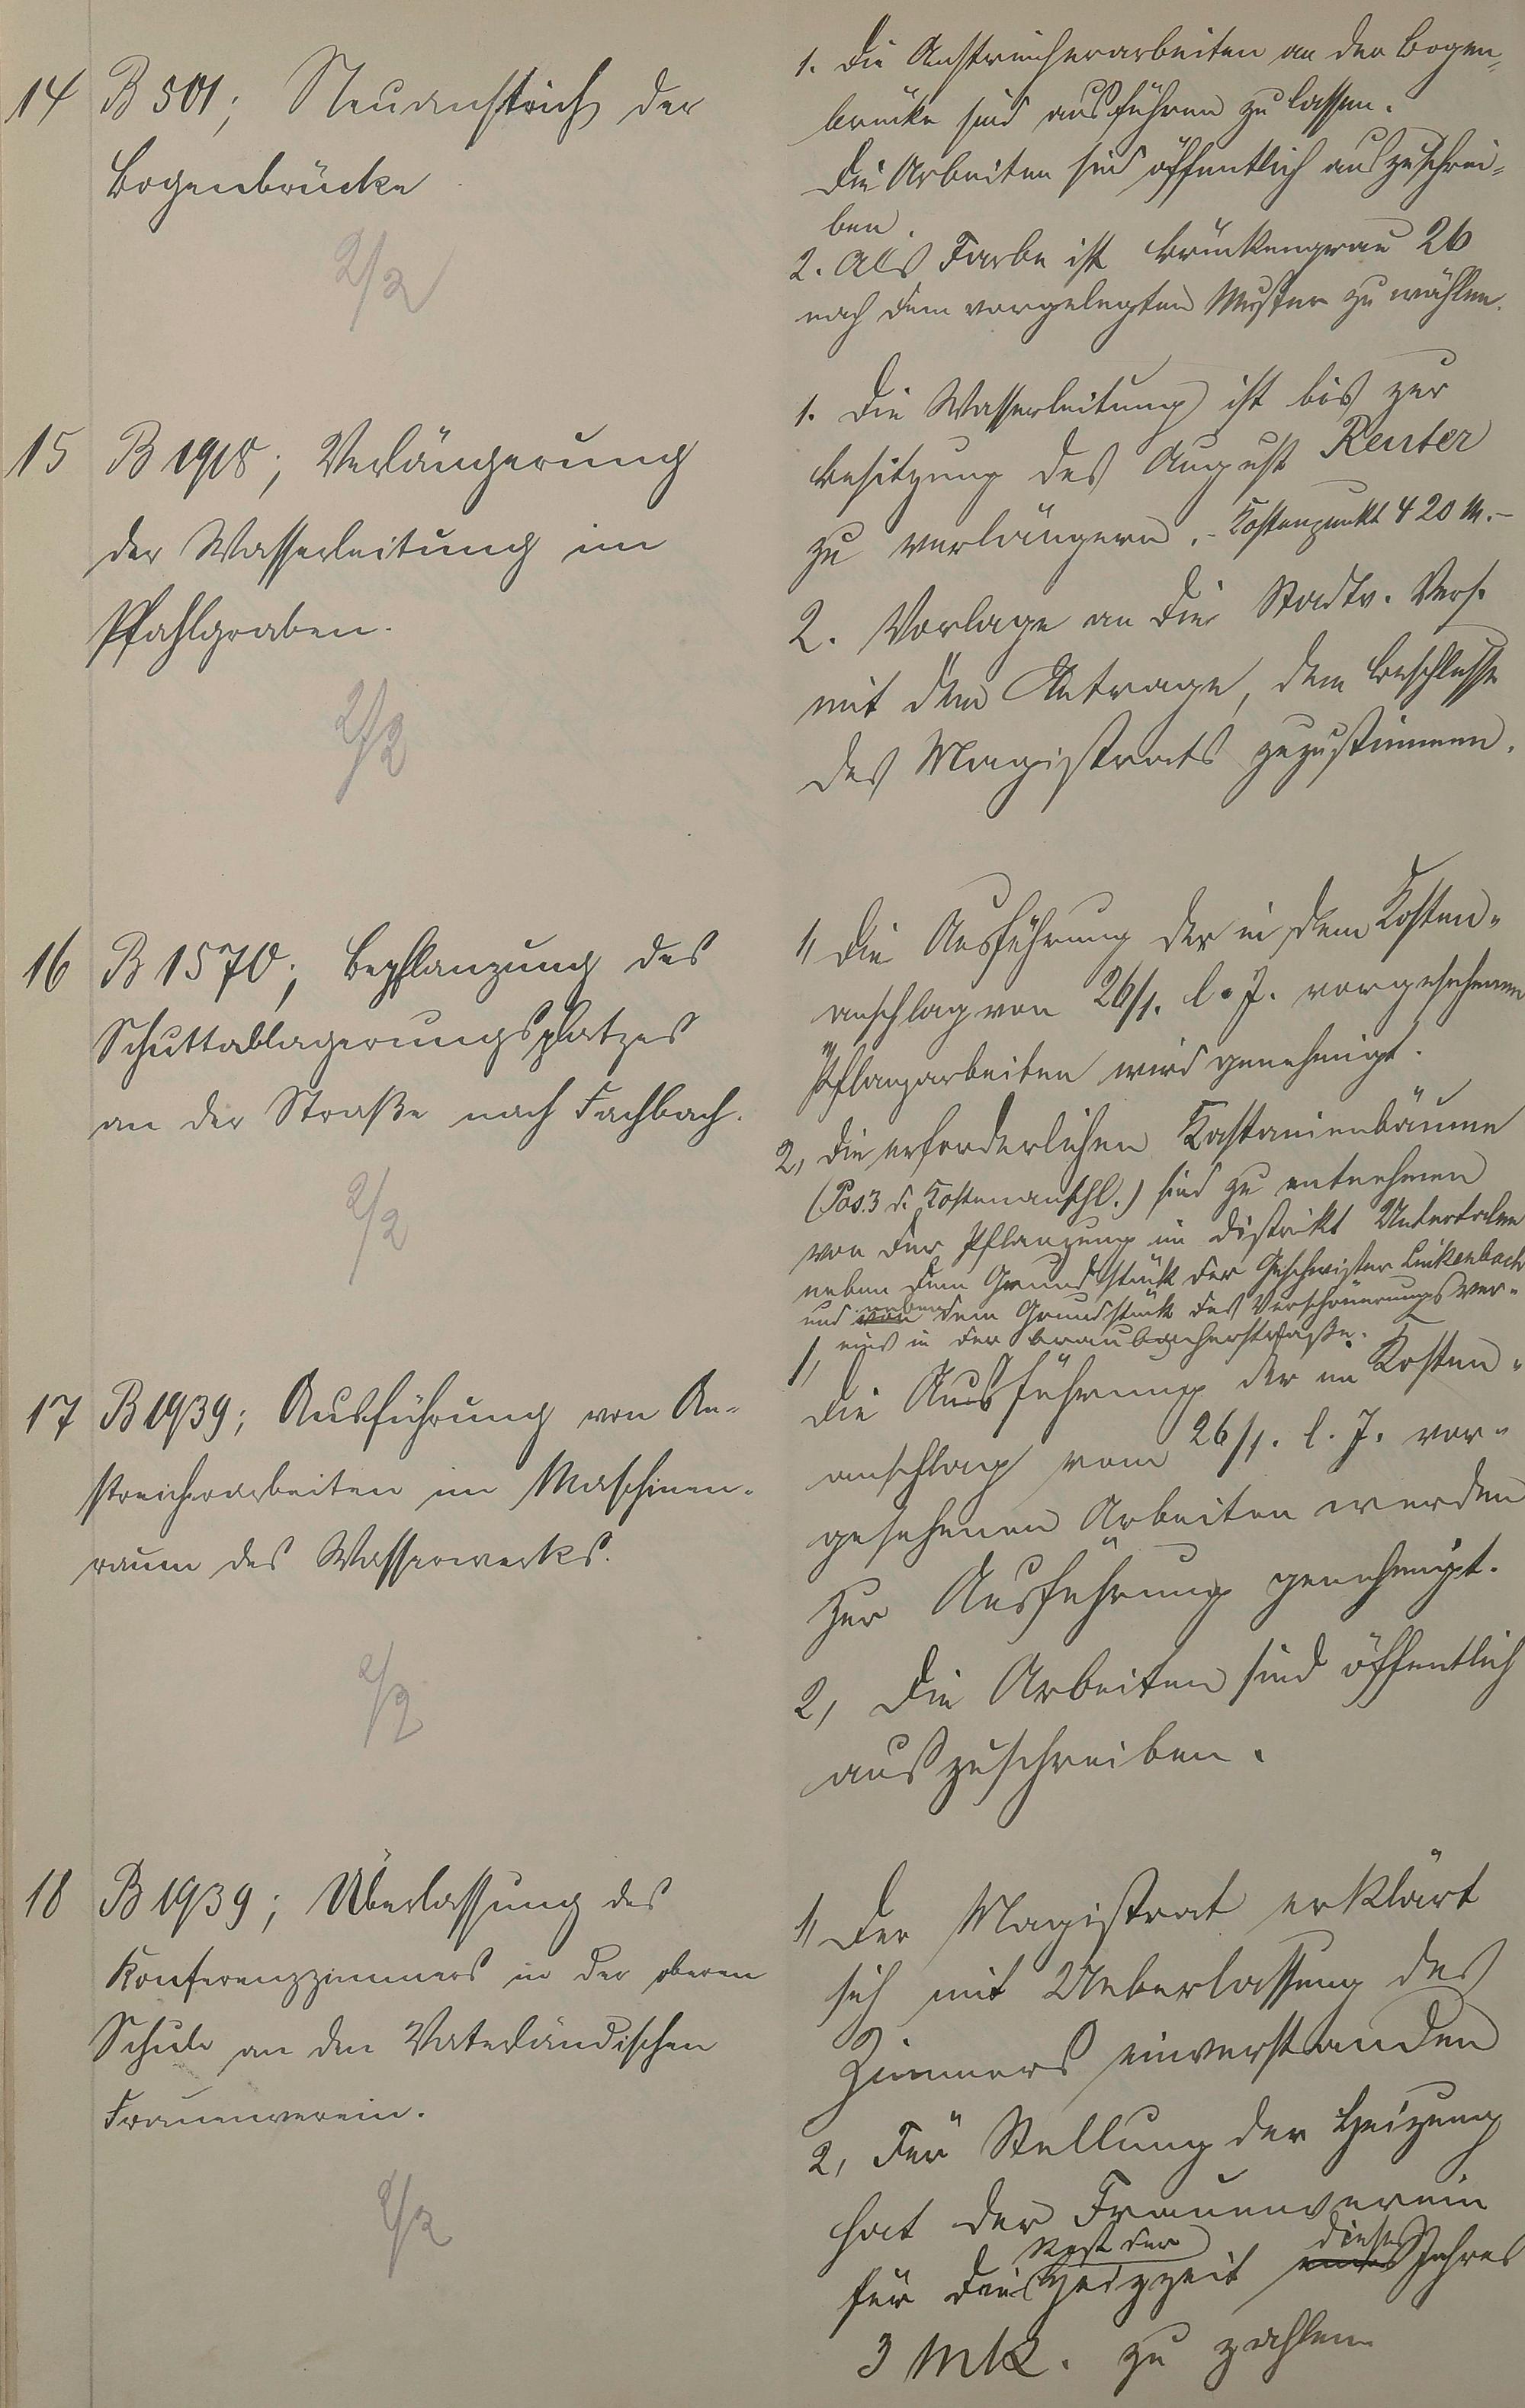 14 B 501; Neuanstrich der
Bogenbrücke
2/2
1. Die Anstreicherarbeiten an der Bogen-
brücke sind ausführen zu lassen.
Die Arbeiten sind öffentlich auszuschrei-
ben.
2. Als Farbe ist Brückengrau 26
nach dem vorgelegten Muster zu wählen.
15 B 1918; Verlängerung
der Wasserleitung im
Pfahlgraben.
2/2
1. Die Wasserleitung ist bis zur
Besitzung des August Reuter
zu verlängern. - Kostenpunkt 420 M. -
2. Vorlage an die Stadtv. Vers.
mit dem Antrage, dem Beschlusse
des Magistrats zuzustimmen.
16 B 1570; Bepflanzung des
Schuttablagerungsplatzes
an der Straße nach Fachbach.
2/2
1, Die Ausführung der in dem Kosten-
anschlag von 26/1. l. J. vorgesehenen
Pflanzarbeiten wird genehmigt.
2, Die erforderlichen Kastanienbäume
(Pos. 3 d. Kostenanschl.) sind zu entnehmen
von der Pflanzung im Distrikt
neben dem Grundstück der Geschwister Linkenbach
und von neben dem Grundstück des Verschönerungsver-
eins in der Braubacherstraße.
17 B 1939; Ausführung von An-
streicherarbeiten im Maschinen-
raum des Wasserwerks.
2/2
1, Die Ausführung der im Kosten-
anschlag vom 26/1. l. J. vor-
gesehenen Arbeiten werden
zur Ausführung genehmigt.
2, Die Arbeiten sind öffentlich
auszuschreiben.
18 B 1939; Überlassung des
Konferenzzimmers in der oberen
Schule an den Vaterländischen
Frauenverein.
2/2
1, Der Magistrat erklärt
sich mit Ueberlassung des
Zimmers einverstanden
2, Für Stellung der Heizung
hat der Frauenverein
für die Rest der Heizzeit eines dieses Jahres
3 Mk. zu zahlen